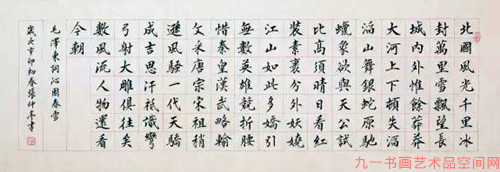 北國風光千里冰
封萬里雪飄望長
城內外惟餘莽莽
大河上下頓失滔
滔山舞銀蛇原馳
蠟象欲與天公試
比高須晴日看紅
裝素裹分外妖嬈
江山如此多嬌引
無數英雄競折腰
惜秦皇漢武略輸
文采唐宗宋祖稍
遜風騷一代天驕
成吉思汗祇識彎
弓射大雕俱往矣
數風流人物還看
今朝
毛澤東詞沁園春雪
歲次辛卯初春張仲亭書
九一书画艺术品空间网